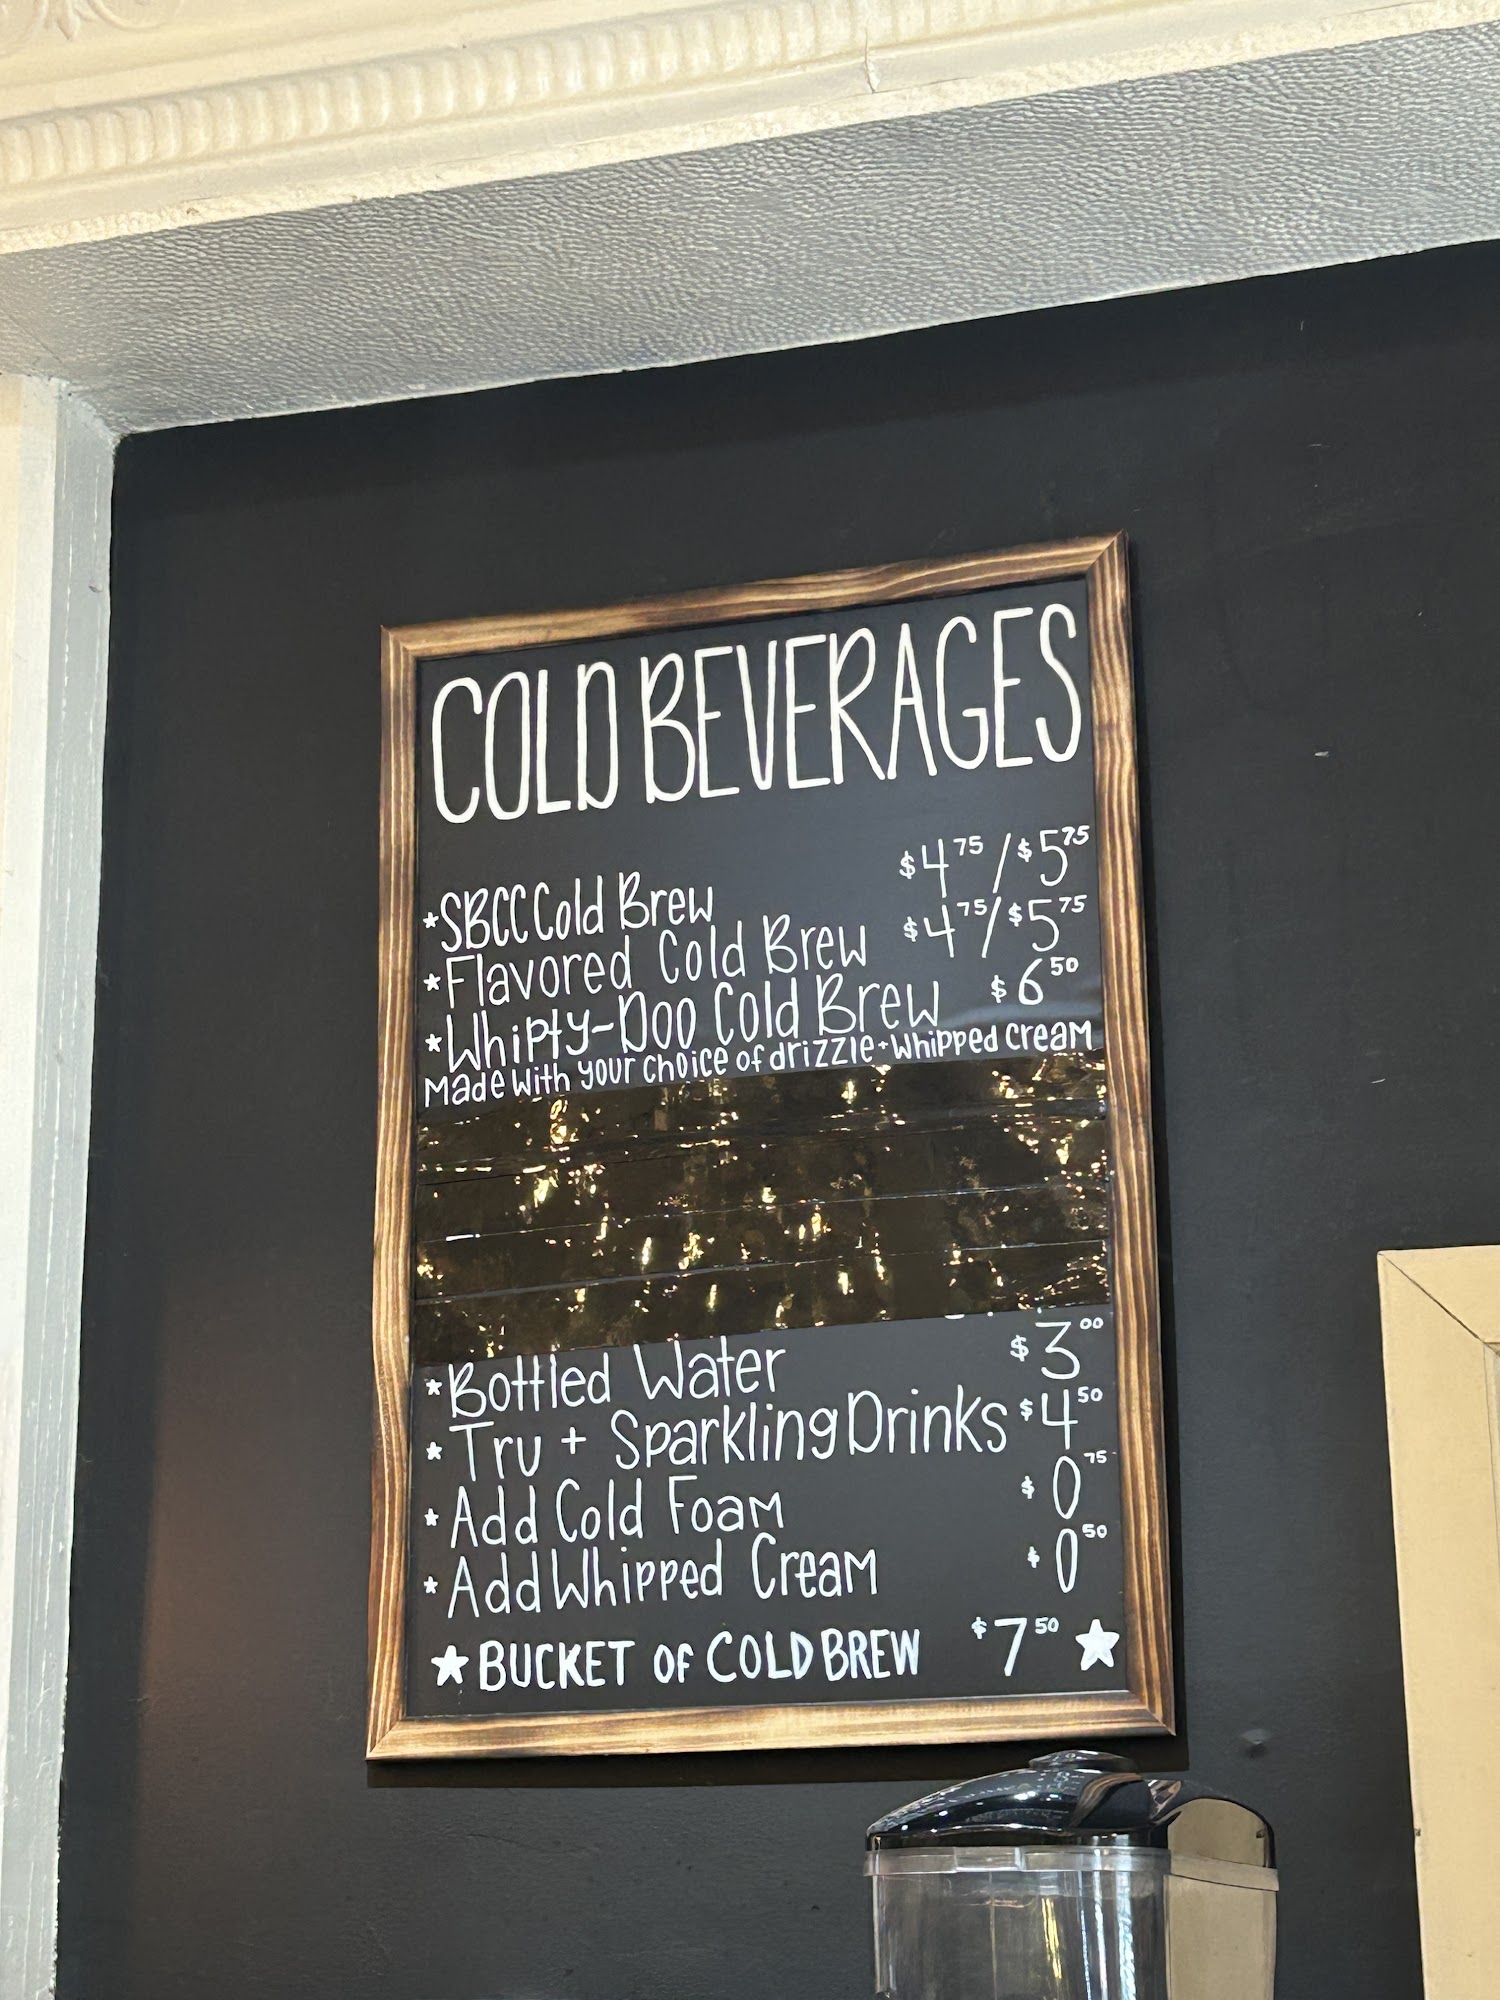 COLD BEVERAGES
*SBCC Cold Brew $4.75/$5.75
*Flavored Cold Brew $4.75/$5.75
*Whipty-Doo Cold Brew $6.50
Made with your choice of drizzle + whipped cream
*Bottled Water $3.00
*Tru + Sparkling Drinks $4.50
*Add Cold Foam $0.75
*Add Whipped Cream $0.50
★ BUCKET OF COLD BREW $7.50 ★